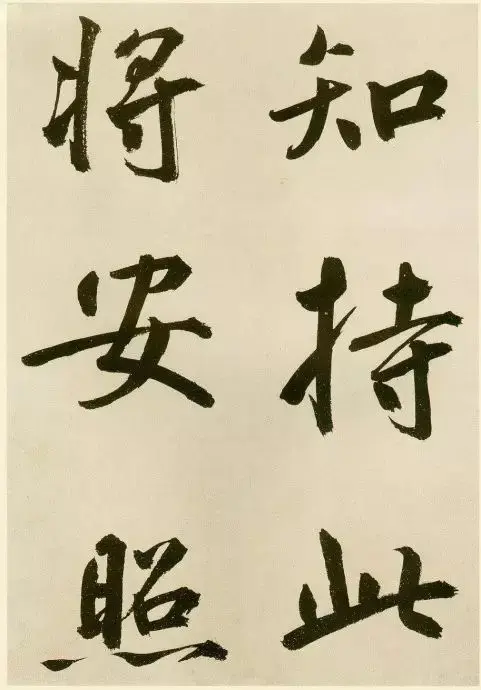 知持此
將安照